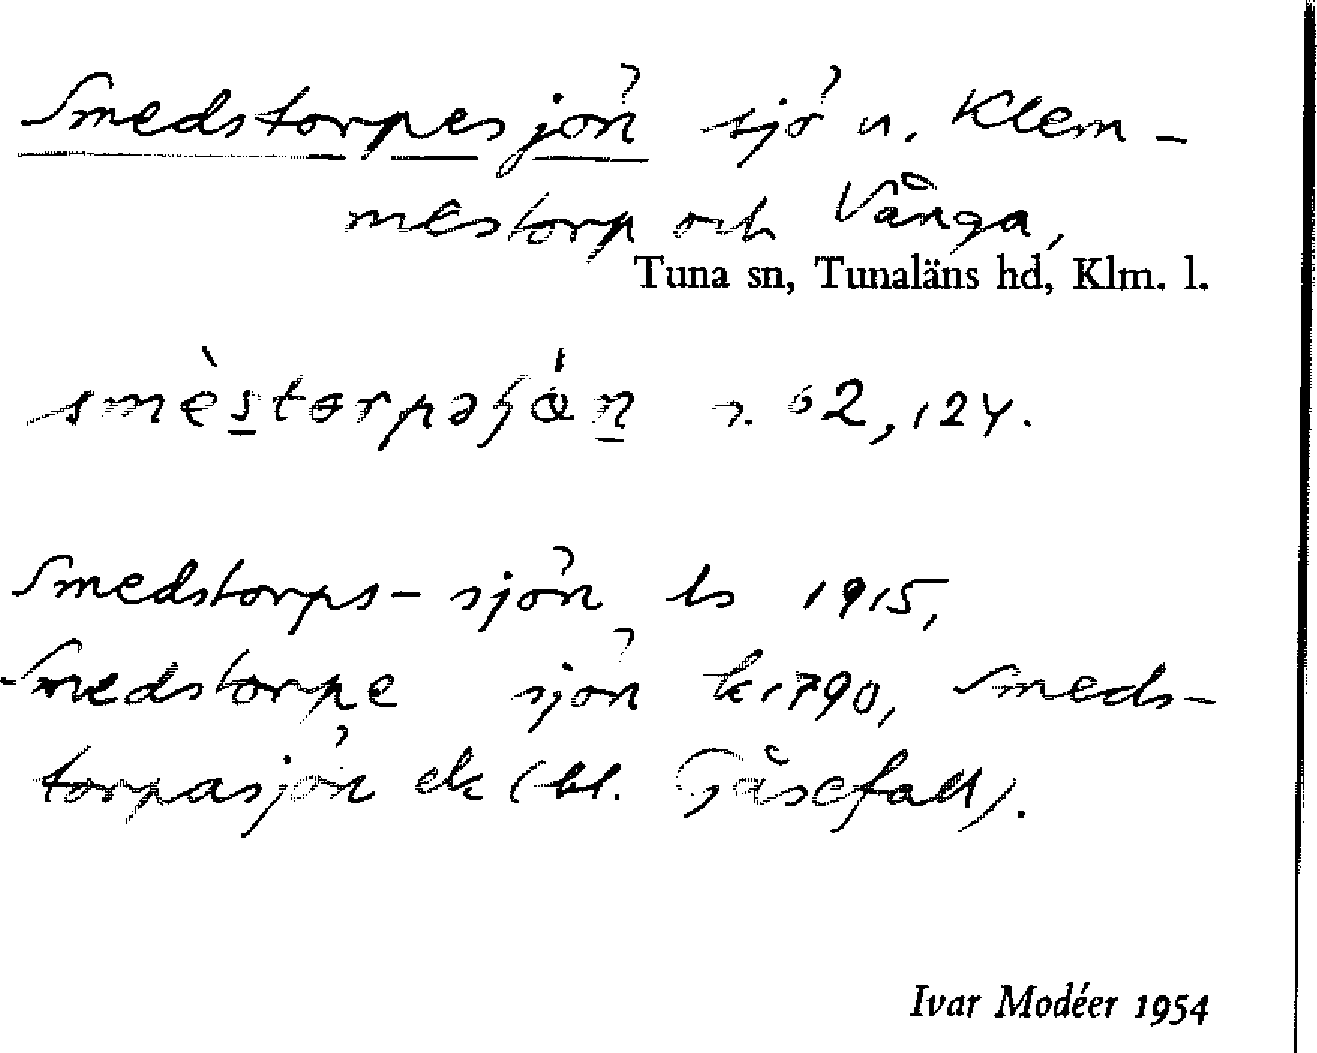 Smedstorpesjön sjö u. Klem-
mestorp och Vånga,
Tuna sn, Tunaläns hd, Klm. l.
62,124.
Smedstorps- sjön ls 1915,
Smedstorpe sjön k 1790, Smeds-
torpasjön ek (bl. Gåsefall).
Ivar Modéer 1954